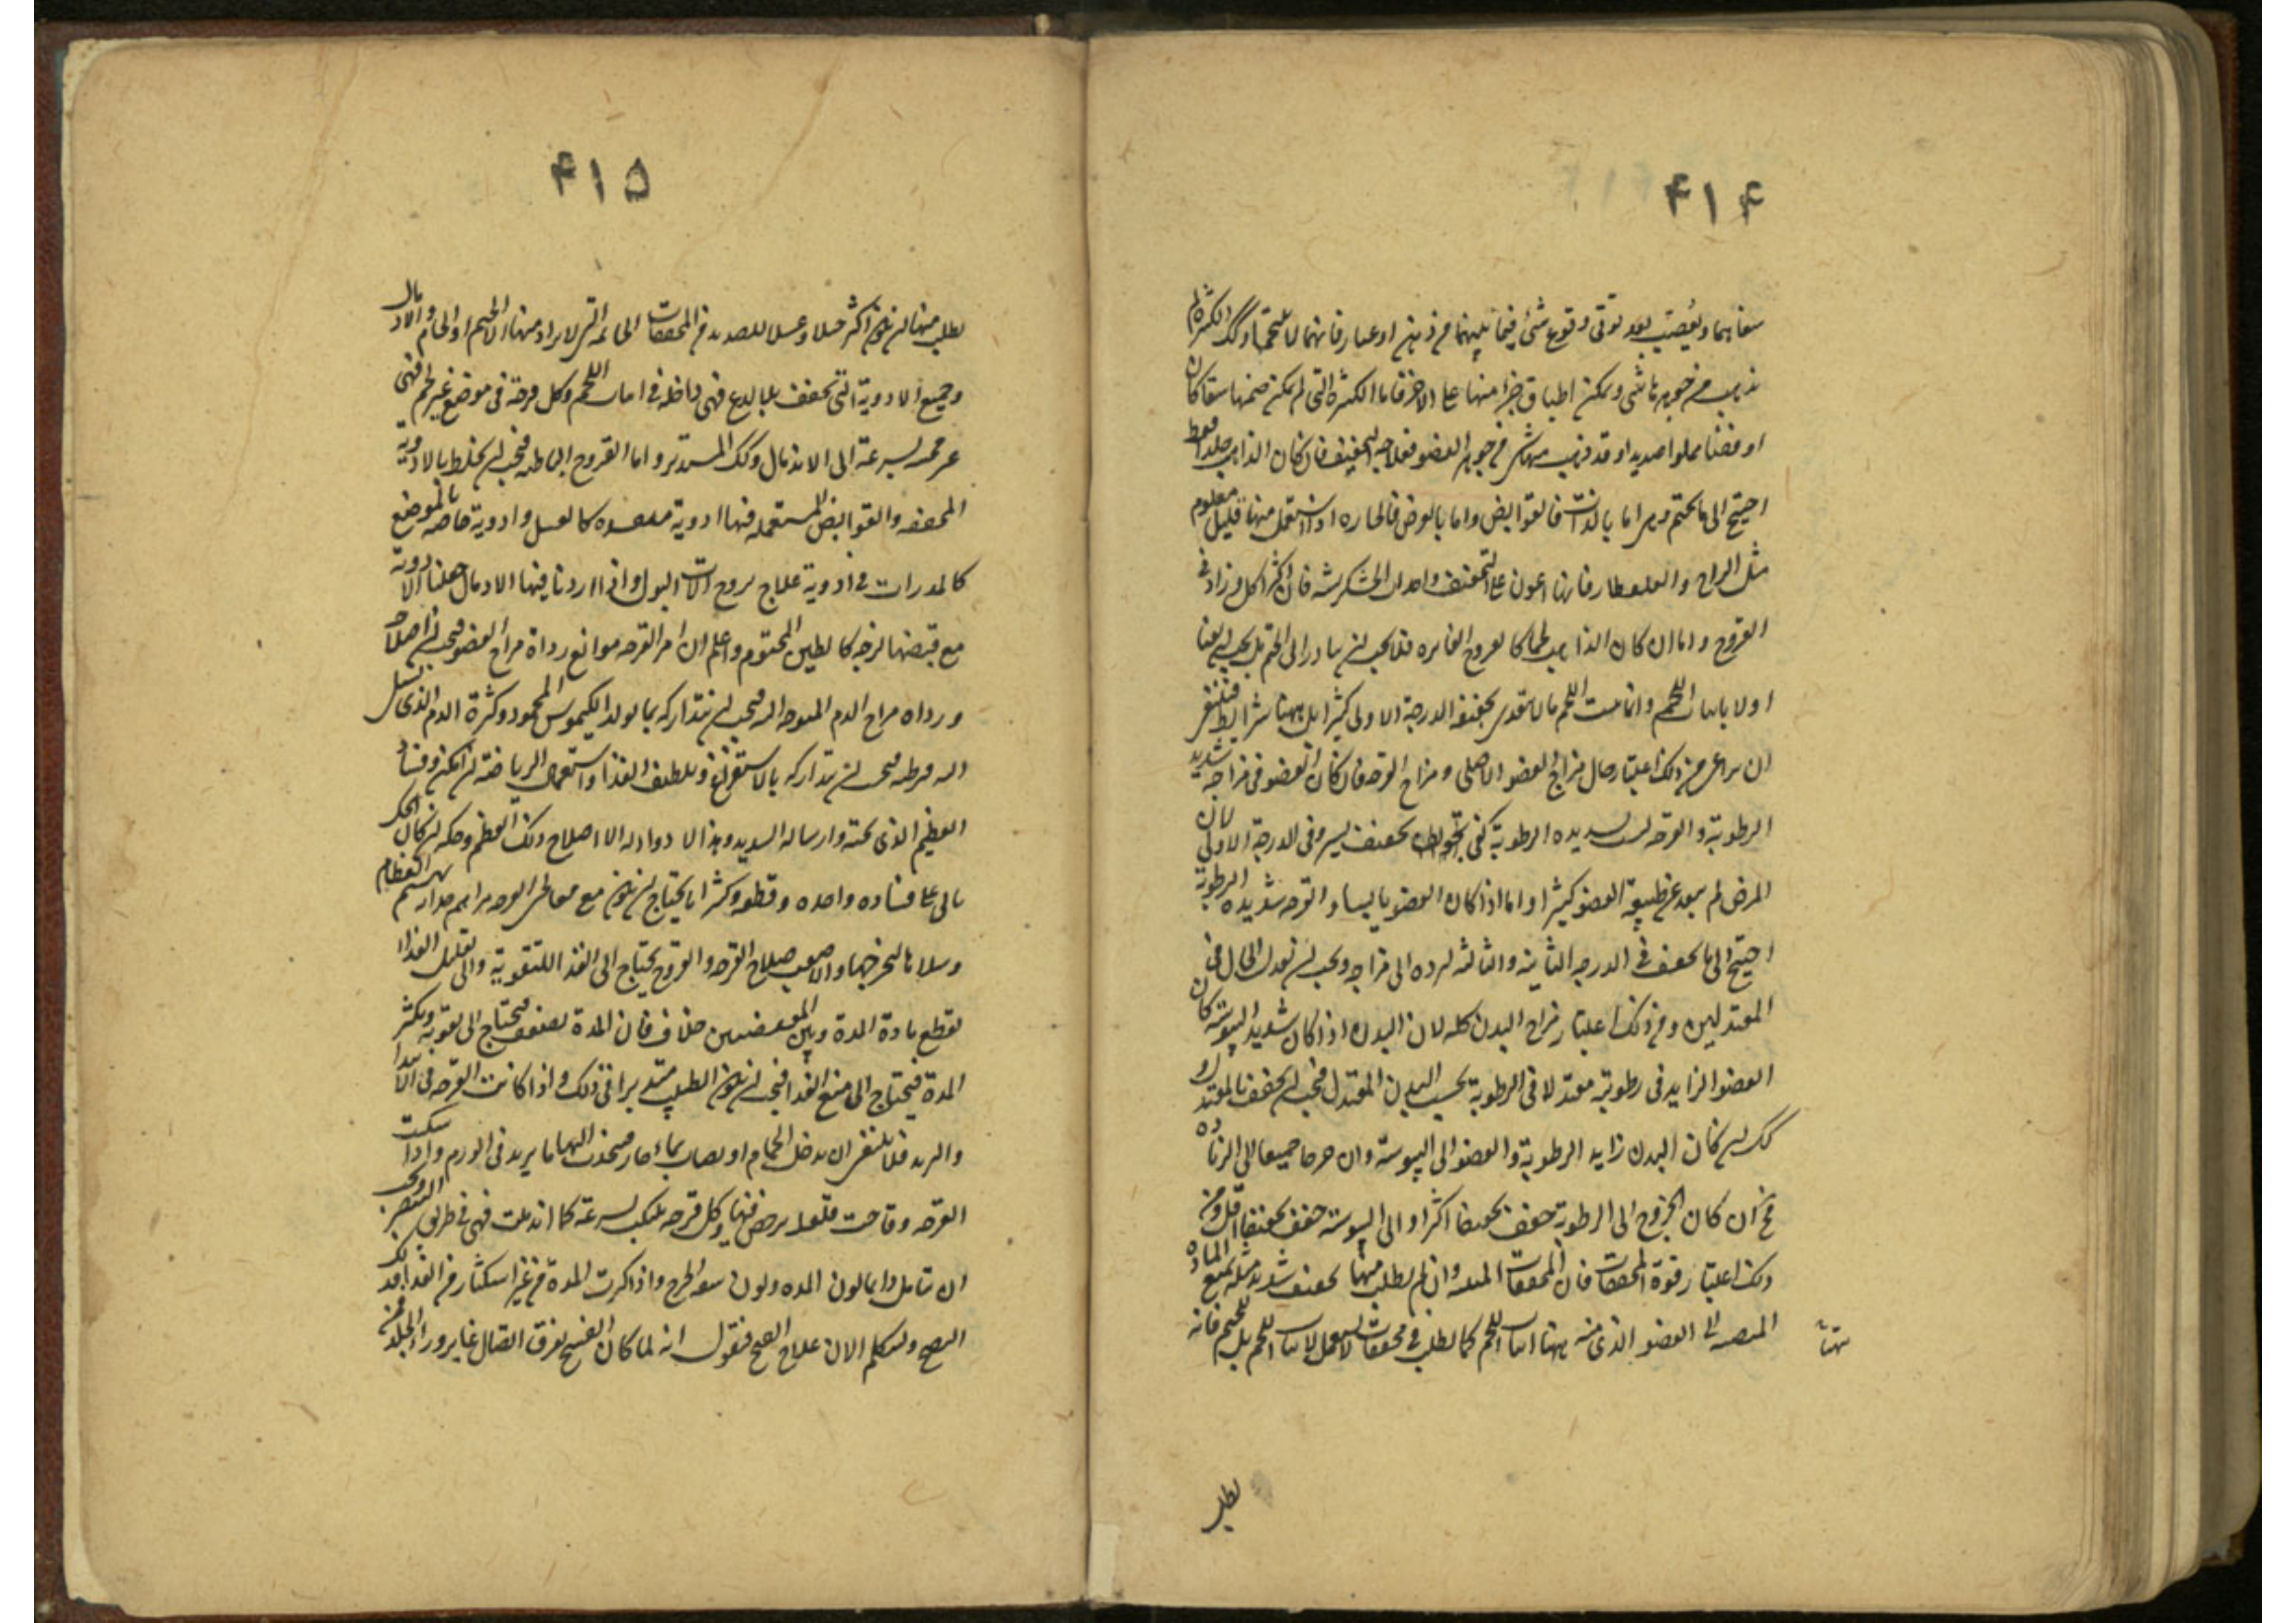 ۴۱۴
شفاهها ويعصب بعد توقى وقوع شئ فيما بينهما من دهن او غبار فانهما لا تلتحم وكذلك الكبيرة التى لم
يذهب من جوهرها شئ ويمكن اطباق جزء منها على الاخر فاما الكبيرة التى لم يمكن ضمها شقا كان
او فضاء مملوا صديدا او قد ذهب منها شئ من جوهر العضو فعلاجها التجفيف فان كان الذاهب جلدا فقط
احتيج الى ما يختم وهى اما بالذات فالقوابض واما بالعرض فالحارة اذا استعمل منها قليل معلوم
مثل الزاج والقلقطار فانها اعون على التجفيف واحداث الخشكريشة فان اكثر اكل وزاد فى
القروح واما ان كان الذاهب لحما كالقروح الغائرة فلا يجب ان يبادر الى الختم بل يجب ان يعتنا
اولا بانبات اللحم وانما ينبت اللحم ما لا يتعدى تجفيفه الدرجة الاولى كثيرا بل هاهنا شرايط فينبغى
ان يراعى من ذلك اعتبار حال مزاج العضو الاصلى ومزاج القرحة فان كان العضو فى مزاجه شديد
الرطوبة والقرحة ليست بشديدة الرطوبة كفى تجفيف يسير فى الدرجة الاولى لان
المرض لم يبعد عن طبيعة العضو كثيرا واما اذا كان العضو يابسا والقرحة شديدة الرطوبة
احتيج الى ما يجفف فى الدرجة الثانية والثالثة ليرده الى مزاجه ويجب ان يعدل الحال فى
المعتدلين ومن ذلك اعتبار مزاج البدن كله لان البدن اذا كان شديد اليبوسة كان
العضو الزايد فى رطوبته معتدلا فى الرطوبة بحسب البدن المعتدل فيجب ان يجفف بالمعتدل و
كذلك ان كان البدن زايد الرطوبة والعضو الى اليبوسة وان خرجا جميعا الى الزيادة
فح ان كان الخروج الى الرطوبة جفف تجفيفا اكثر او الى اليبوسة جفف تجفيفا اقل ومن
ذلك اعتبار قوة المجففات فان المجففات المنبتة وان لم يطلب منها تجفيف شديد مثله يمنع المادة
المنصبة الى العضو الذى منه يتهيأ انبات اللحم كما يطلب فى مجففات لا تستعمل لانبات اللحم بل للختم فانه
يتهيأ
يطلب
۴۱۵
يطلب منها ان يكون اكثر جلاء وغسلا للصديد من المجففات الخاتمة التى لا يراد منها الا الختم او الالحام والادمال
وجميع الادوية التى تجفف بلا لدع فهى داخلة فى انبات اللحم وكل قرحة فى موضع غير لحم فهى
غير مجيبة بسرعة الى الاندمال وكذلك المستديرة واما القروح الباطنة فيجب ان يخلط بالادوية
المجففة والقوابض المستعملة فيها ادوية منفذة كالعسل وادوية خاصة بالموضع
كالمدرات فى ادوية علاج قروح الات البول واذا اردنا فيها الادمال جعلنا الادوية
مع قبضها لزجة كالطين المختوم واعلم ان امر القرحة موانع رداة مزاج العضو فيجب ان اصلاح
ورداة مزاج الدم المتوجه اليه فيجب ان يتداركه بما يولد الكيموس المحمود وكثرة الدم الذى يسيل
اليه ويرطبه فيجب ان يتداركه بالاستفراغ وتلطيف الغذا واستعمال الرياضة ان امكن وفساد
العظيم الذى تحته وارساله الصديد وهذا لا دوا له الا اصلاح ذلك العظم وحكه ان كان الحك
ياتى على فساده واخذه وقطعه وكثيرا ما يحتاج ان يكون مع معالجى القرحة مراهم جذابة لهشيم العظام
وسلا ما ليخرجها والا صعب صلاح القرحة والقروح يحتاج الى الغذا للتقوية والى تقليل الغذاء
لقطع مادة المدة وبين المقتضيين خلاف فان المدة تضعف فيحتاج الى تقوية وتكثر
المدة فيحتاج الى منع الغذا فيجب ان يكون الطبيب متدبرا فى ذلك واذا كانت القرحة فى الابتداء
والتزيد فلا ينبغى ان يدخل الحمام او يصاب بماء حار فيجذب اليها ما يزيد فى الورم واذا سكنت
القرحة وقاحت فلعله يرخص فيها وكل قرحة تنتكث بسرعة كما اندملت فهى فى طريق التنصر ويجب
ان يتامل دايما لون المدة ولون شفة الجرح واذا كثرت المدة من غير استكثار من الغذا فذلك
النضج ولنتكلم الان علاج الفسخ فنقول انه لما كان الفسخ تفرق اتصال غاير وراء الجلد فمن